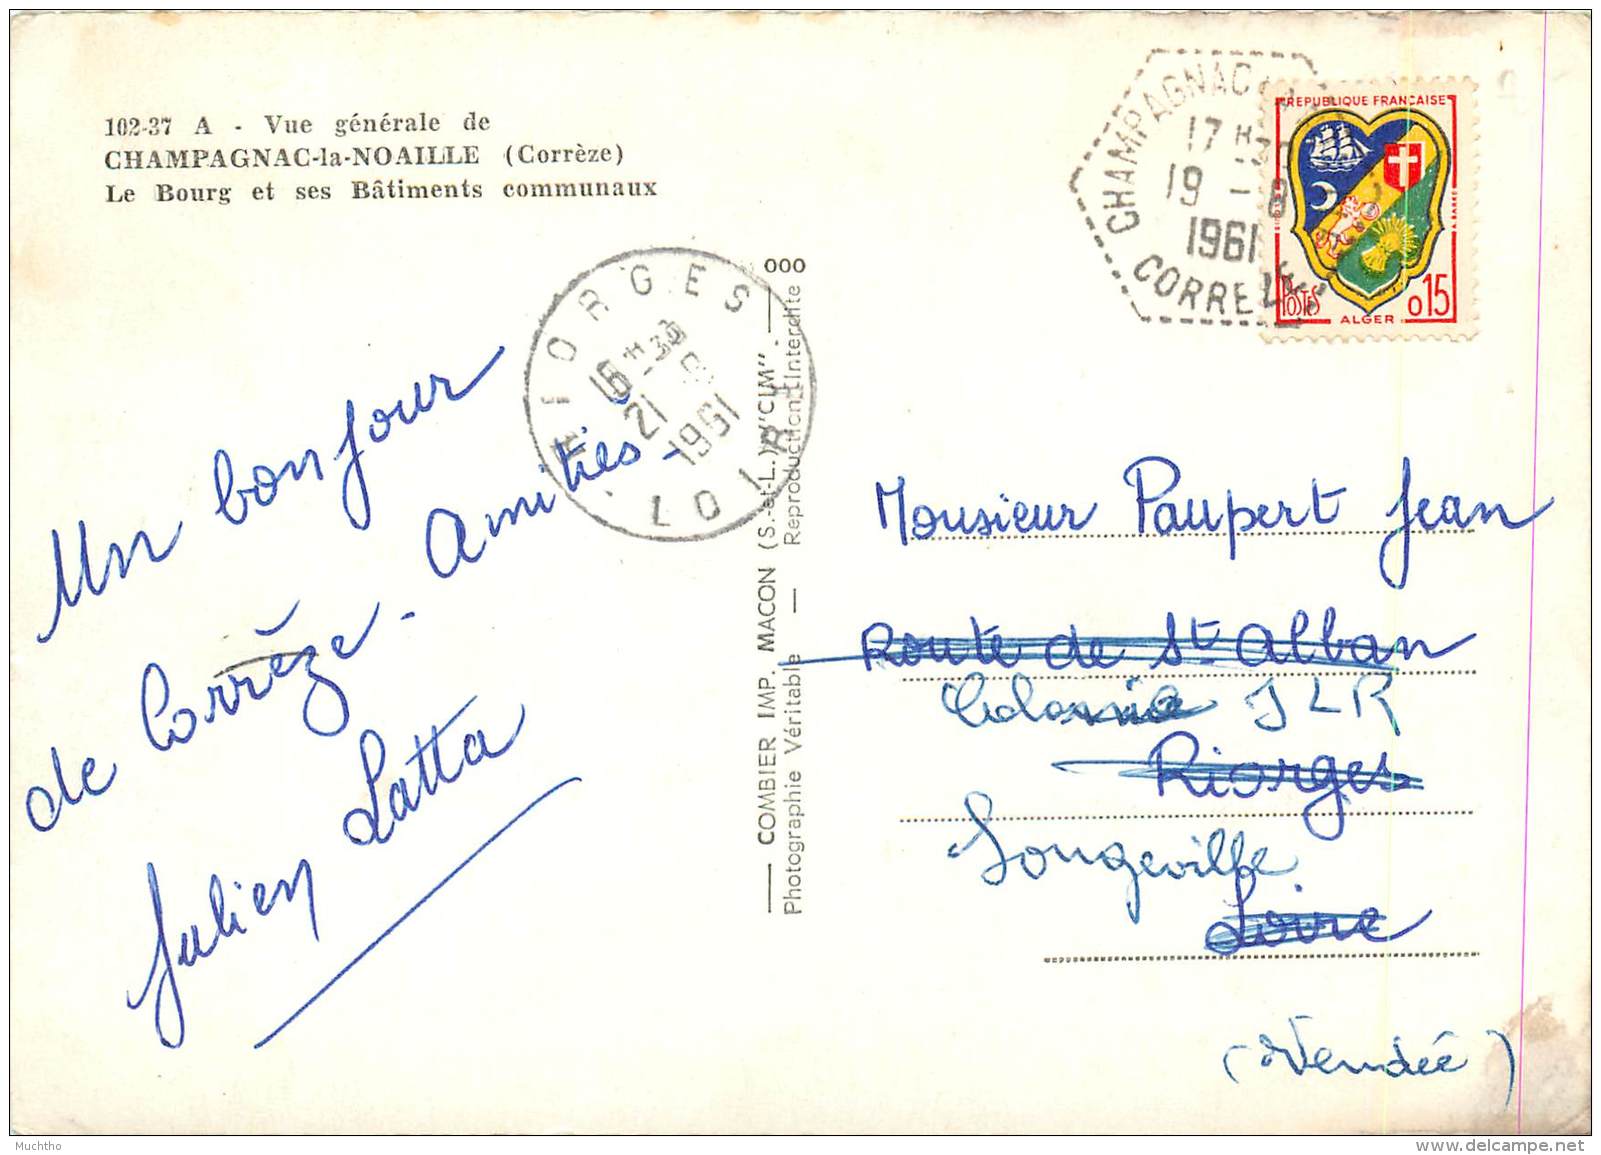 102-37 A - Vue générale de
CHAMPAGNAC-la-NOAILLE (Corrèze)
Le Bourg et ses Bâtiments communaux
Un bonjour
de Corrèze - Amitiés -
Julien Latta
RIORGES
16 H 30
21 - 8
1961
LOIRE
000
COMBIER IMP. MACON (S.-et-L.) "CIM"
Photographie Véritable — Reproduction Interdite
CHAMPAGNAC
17 H
19 - 8
1961
CORREZE
REPUBLIQUE FRANÇAISE
POSTES
ALGER
0,15
Monsieur Paupert Jean
Route de St Alban
Colonie J L R
Riorges
Longeville
Loire
(Vendée)
Muchtho
delcampe.net